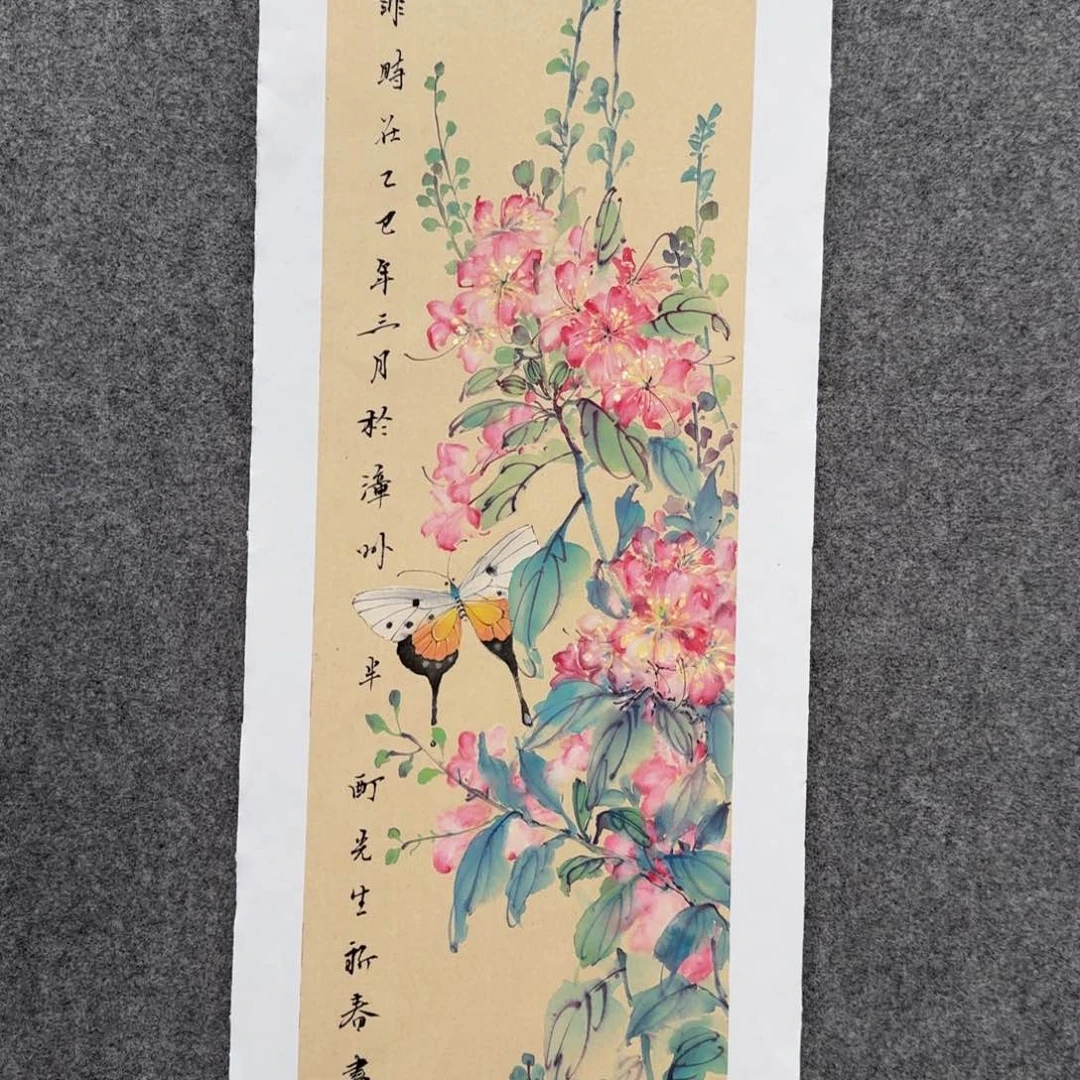 時莊乙巳年三月於漳州半酊先生新春